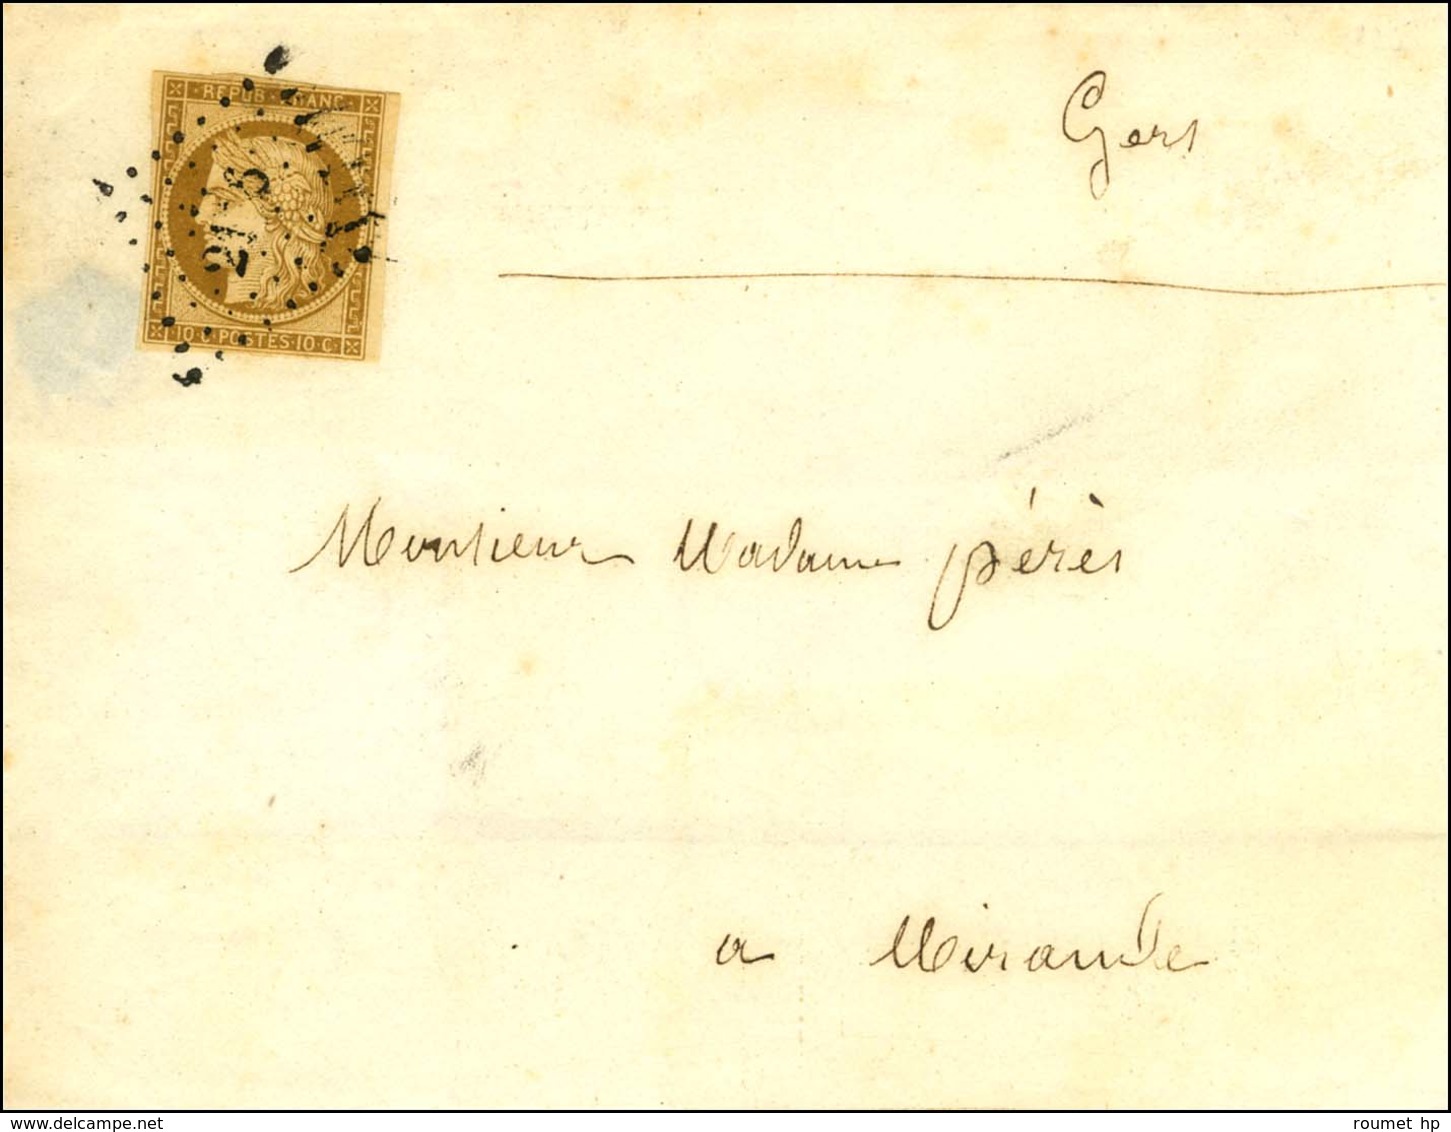 REPUB. FRANC.
10 C. POSTES 10 C.
Gers
Monsieur Madame pérès
a Mirande
www.delcampe.net
roumet hp